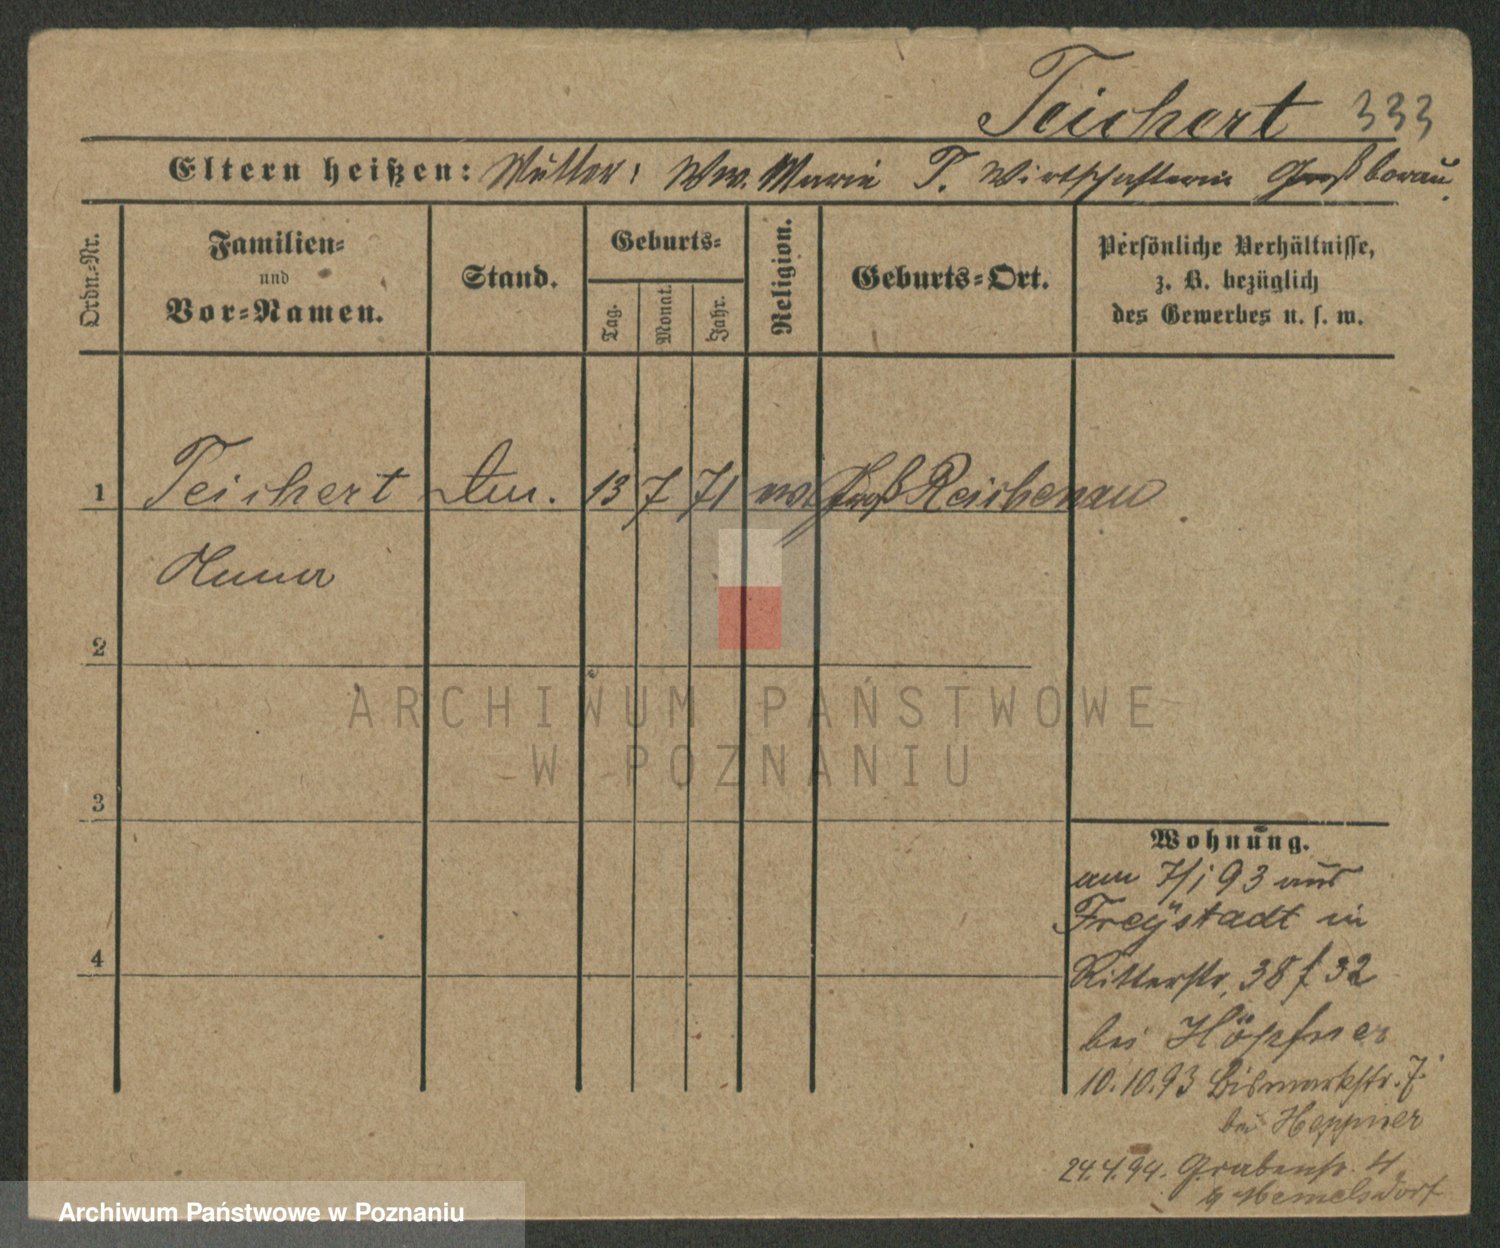 Teichert 333
Eltern heißen: Mutter: Ww. Marie T. Wirtschafterin Großborau.
Ordn.-Nr.
Familien-
und
Vor-Namen.
Stand.
Geburts-
Tag.
Monat.
Jahr.
Religion.
Geburts-Ort.
Persönliche Verhältnisse,
z. B. bezüglich
des Gewerbes u. s. w.
1 Teichert 13 7 71 Groß Reichenau
2
3
4
Wohnung.
am 7/1 93 aus
Freÿstadt in
Ritterstr. 38 f 32
bei Höpfner
10.10.93 Bismarkstr. 7.
bei Heppner
24.4.94. Grabenstr. 4
b Memelsdorf
ARCHIWUM PAŃSTWOWE
W POZNANIU
Archiwum Państwowe w Poznaniu